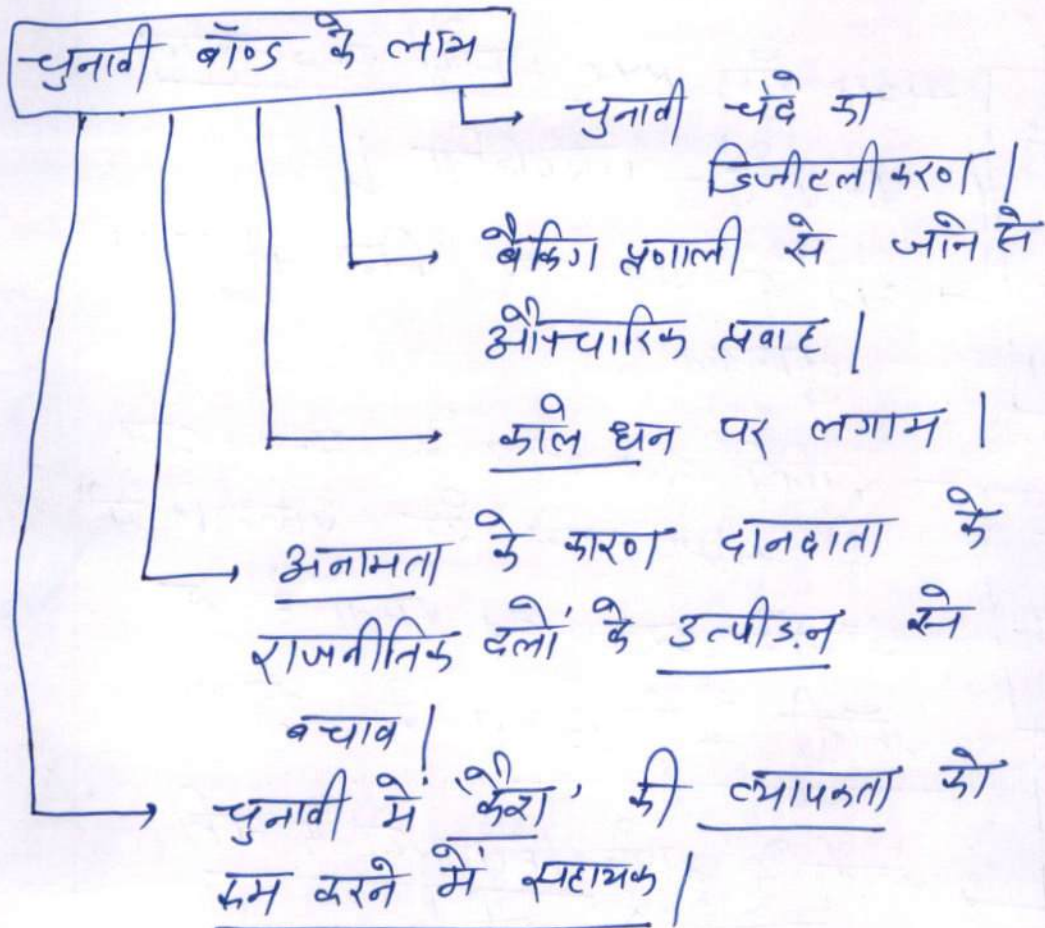 चुनावी बॉण्ड के लाभ
चुनावी चंदे का
डिजीटलीकरण।
बैंकिग प्रणाली से जाने से
औपचारिक प्रवाह।
काले धन पर लगाम।
अनामता के कारण दानदाता के
राजनीतिक दलों के उत्पीड़न से
बचाव।
चुनावी में 'कैश' की व्यापकता को
कम करने में सहायक।